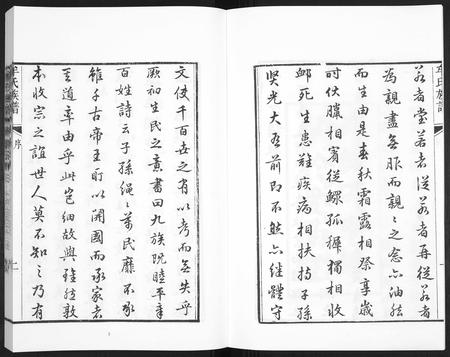 牟氏族譜
若者堂若者從若者再從若者
為親盡無服而親之之念亦油然
而生由是春秋霜露相祭享歲
時伏臘相賓從鰥孤獨相收
卹死生患難疾病相扶持子孫
賢光大吾前即不然亦繼體守
文使千百世之有以考而無失乎
厥初生民之意書曰九族既睦平章
百姓詩云子孫繩繩萬民靡不承
雖千古帝王所以開國而承家者
王道率由乎此豈細故與雖敦
本收宗之誼世人莫不知之乃有
牟氏族譜
序